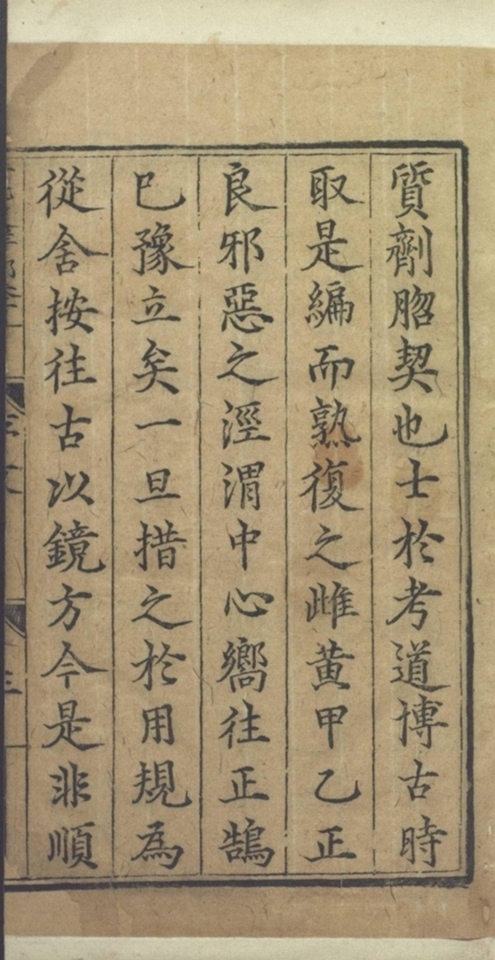 質劑眧契也士於考道博古時
取是編而熟復之雌黃甲乙正
良邪惡之涇渭中心嚮往正鵠
已豫立矣一旦措之於用規為
從舍按往古以鏡方今是非順